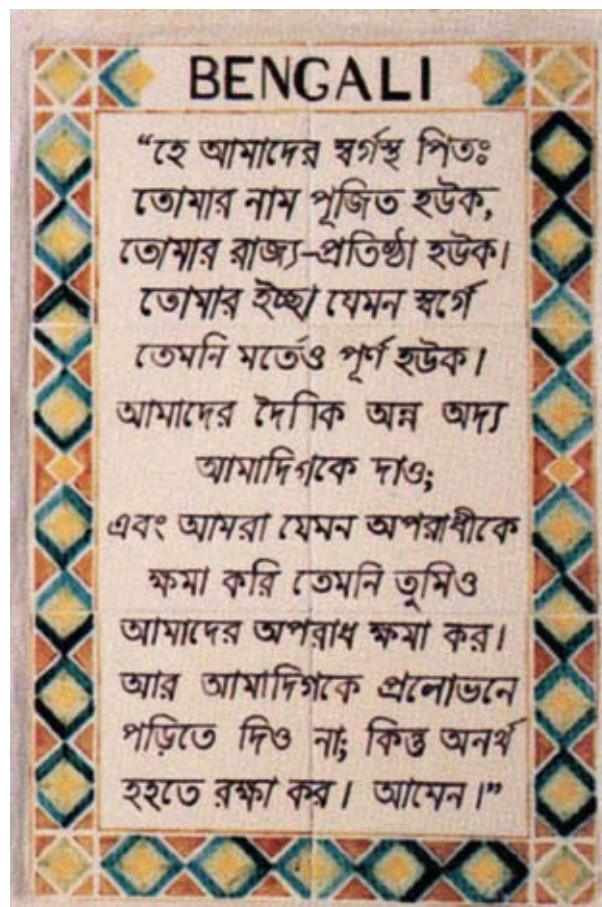 BENGALI
“হে আমাদের স্বর্গস্থ পিতঃ
তোমার নাম পূজিত হউক,
তোমার রাজ্য-প্রতিষ্ঠা হউক।
তোমার ইচ্ছা যেমন স্বর্গে
তেমনি মর্তেও পূর্ণ হউক।
আমাদের দৈনিক অন্ন অদ্য
আমাদিগকে দাও;
এবং আমরা যেমন অপরাধীকে
ক্ষমা করি তেমনি তুমিও
আমাদের অপরাধ ক্ষমা কর।
আর আমাদিগকে প্রলোভনে
পড়িতে দিও না; কিন্তু অনর্থ
হহতে রক্ষা কর। আমেন।”